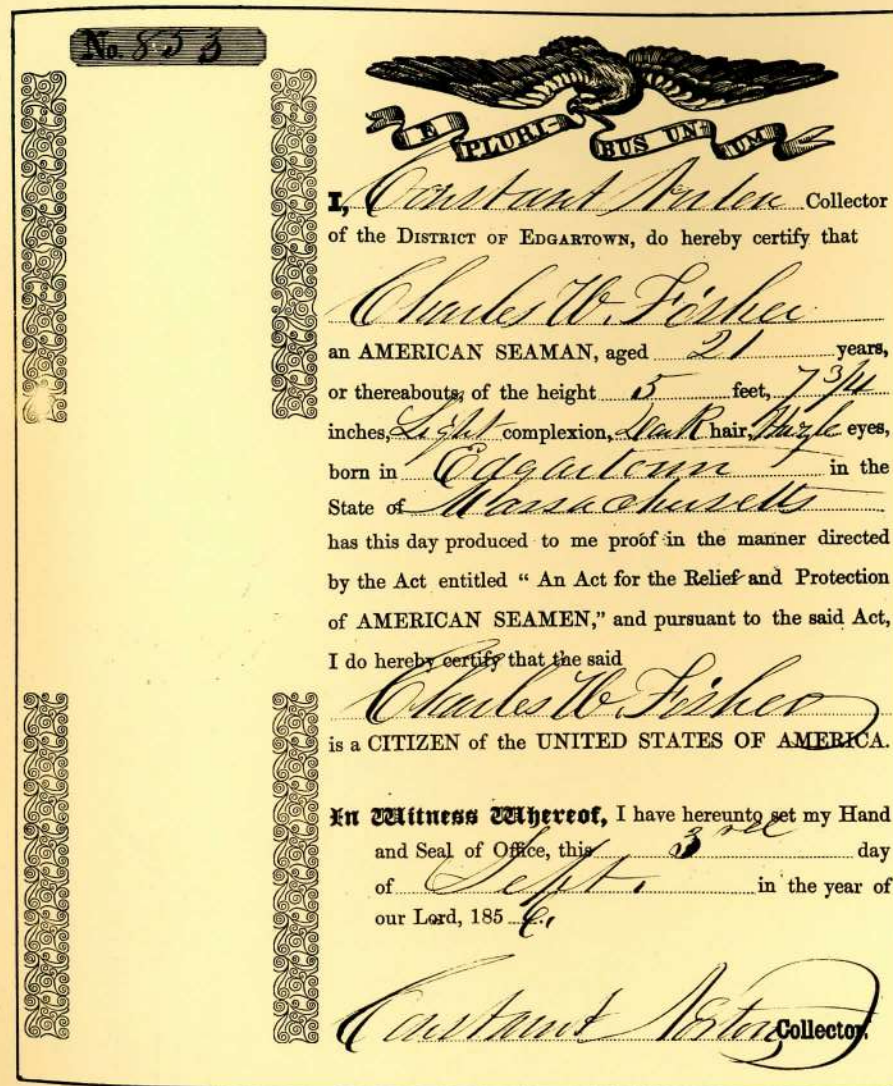 No. 853
E PLURI- BUS UNUM
I, Constant Norton Collector
of the DISTRICT OF EDGARTOWN, do hereby certify that
Charles W. Fisher
an AMERICAN SEAMAN, aged 21 years,
or thereabouts, of the height 5 feet, 7 3/4
inches, Light complexion, Dark hair, Hazle eyes,
born in Edgartown in the
State of Massachusetts
has this day produced to me proof in the manner directed
by the Act entitled “ An Act for the Relief and Protection
of AMERICAN SEAMEN,” and pursuant to the said Act,
I do hereby certify that the said
Charles W. Fisher
is a CITIZEN of the UNITED STATES OF AMERICA.
In Witness Whereof, I have hereunto set my Hand
and Seal of Office, this 3rd day
of Sept. in the year of
our Lord, 185
Constant Norton Collector.